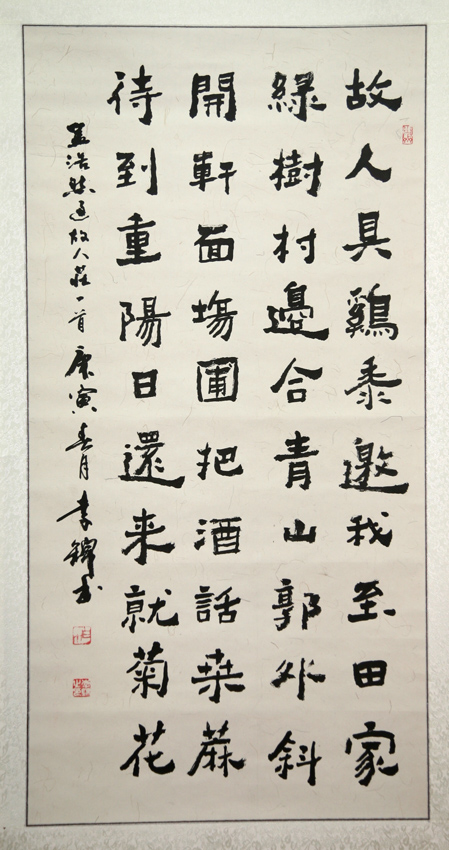 故人具鷄黍邀我至田家
綠樹村邊合青山郭外斜
開軒面塲圃把酒話桒蔴
待到重陽日還来就菊花
孟浩然過故人莊一首 庚寅春月 李 书